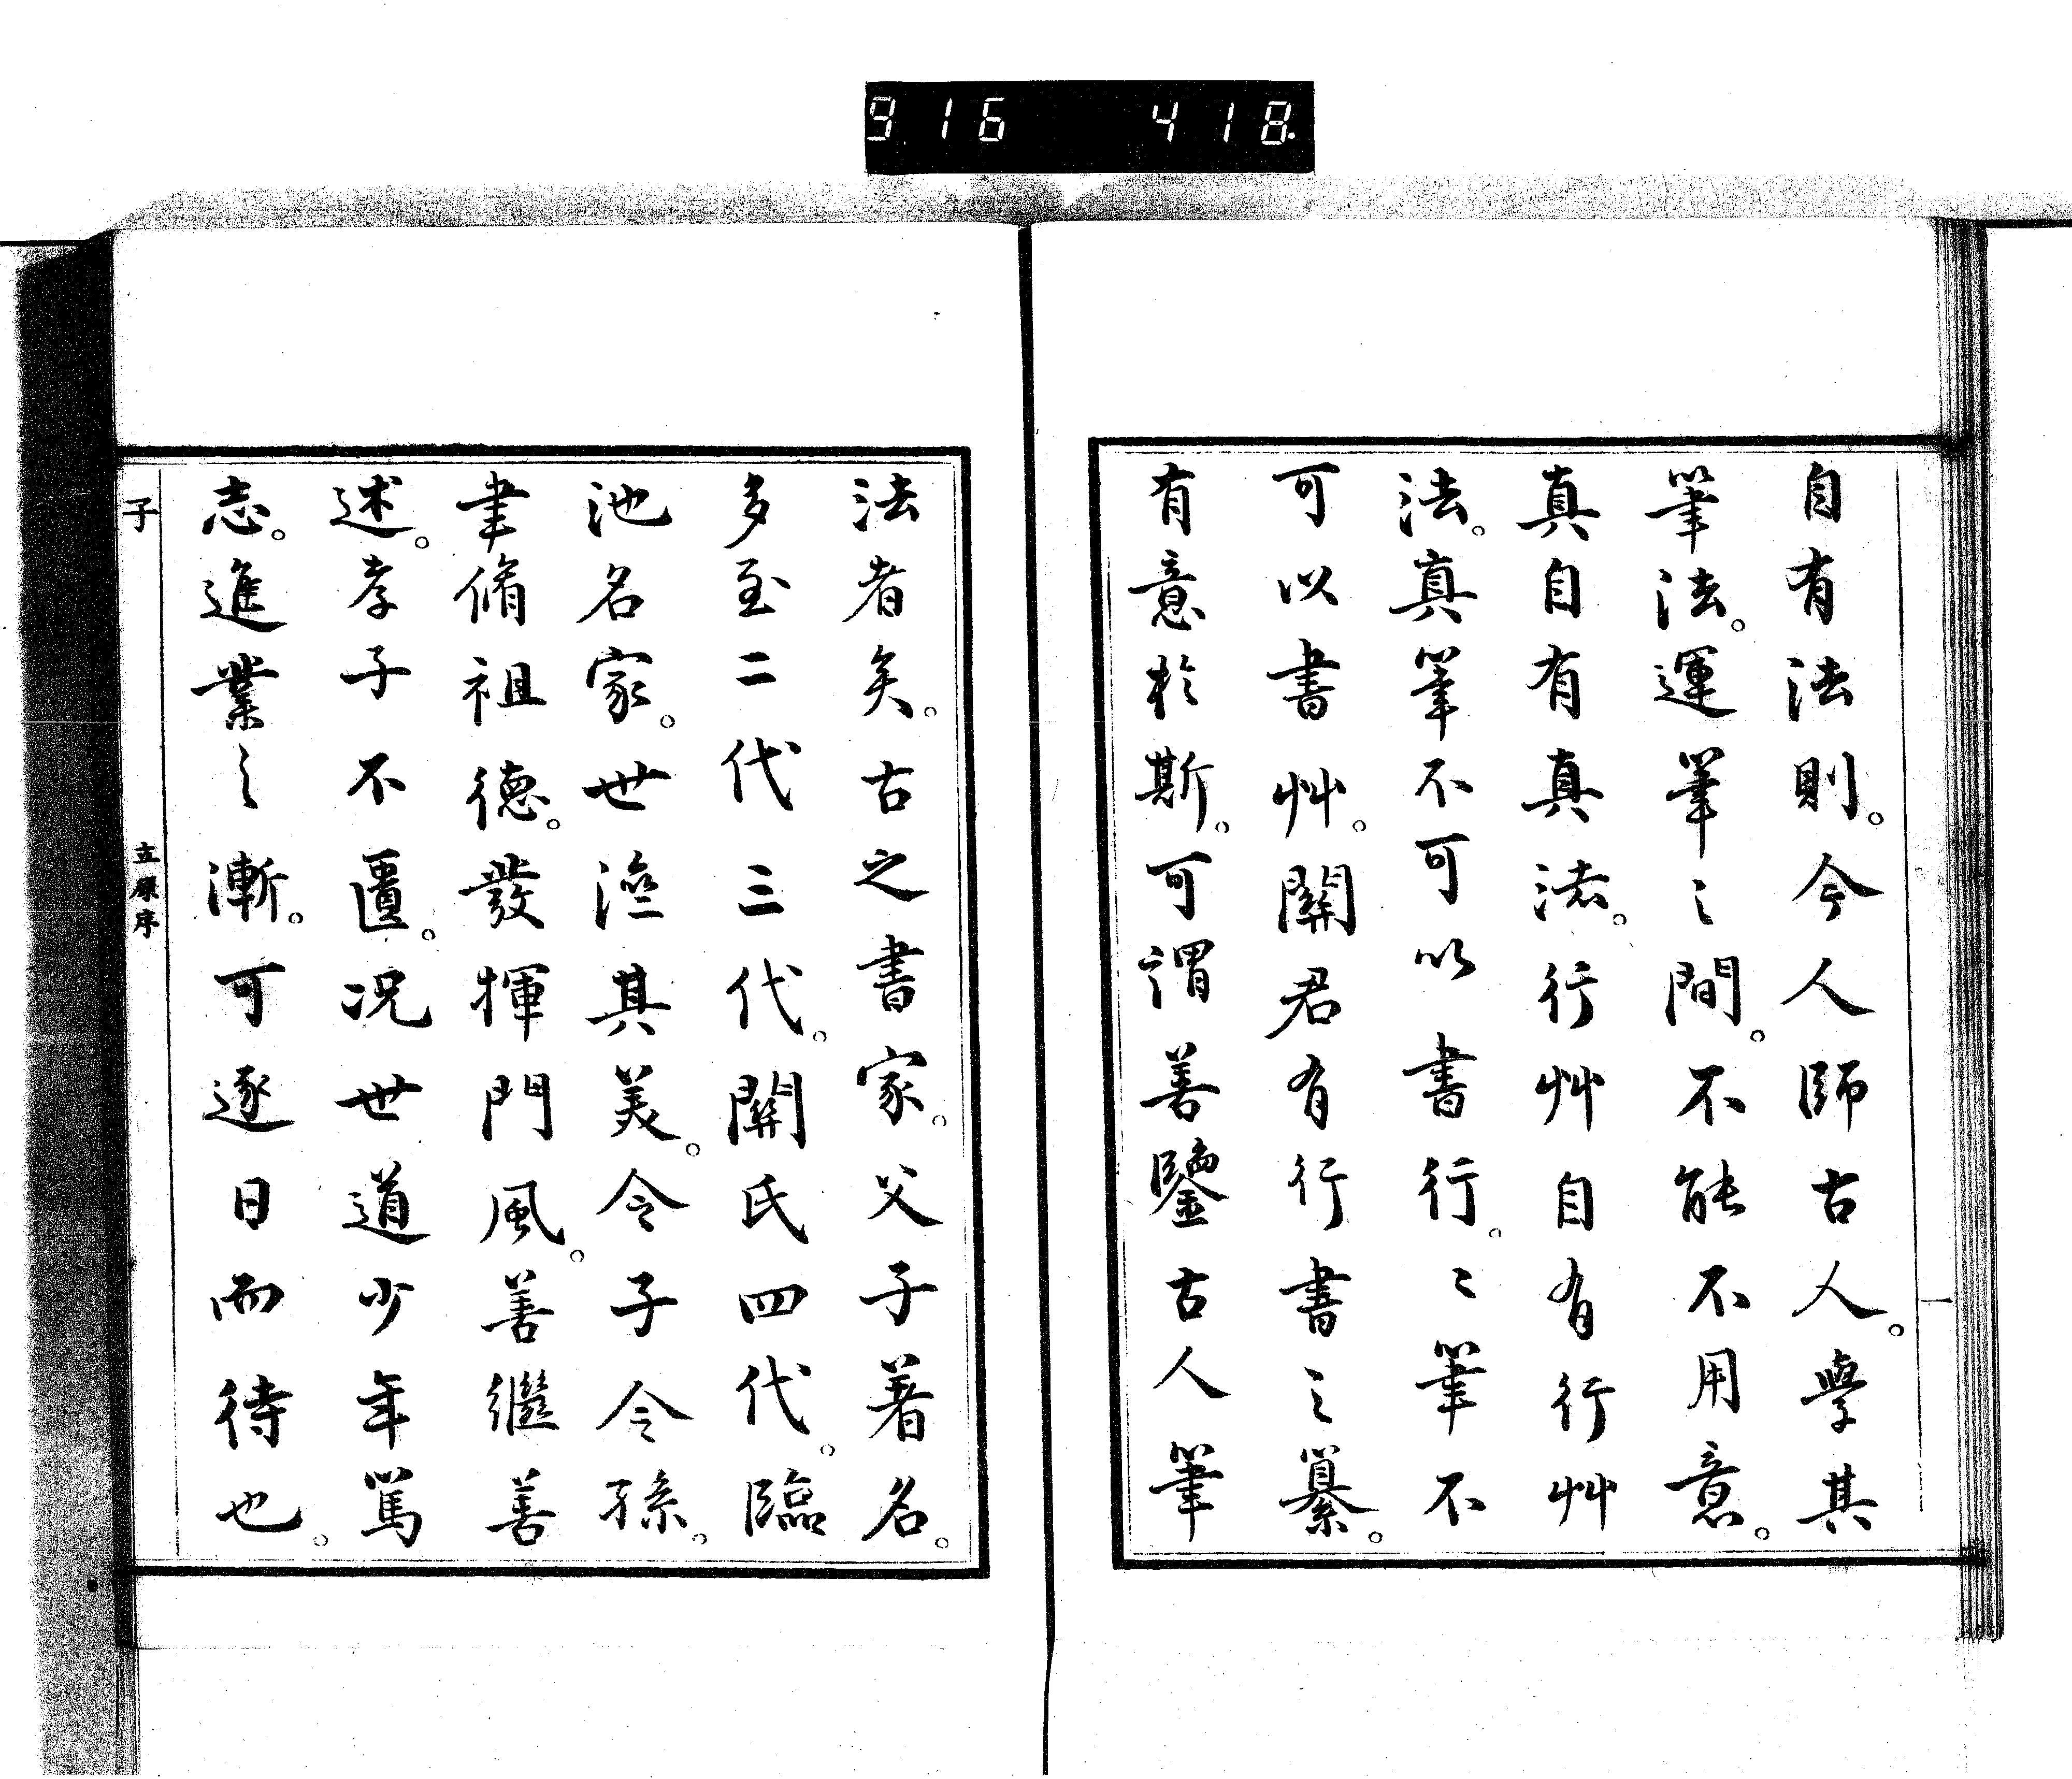 916 418
自有法則。今人師古人。學其
筆法。運筆之間。不能不用意。
真自有真法。行艸自有行艸
法。真筆不可以書行。〻筆不
可以書艸。關君有行書之纂。
有意於斯。可謂善鑒古人筆
一
法者矣。古之書家。父子著名。
多至二代三代。關氏四代。臨
池名家。世濟其美。令子令孫。
聿脩祖德。發揮門風。善繼善
述。孝子不匱。況世道少年篤
志。進業之漸。可逐日而待也。
子 立原序